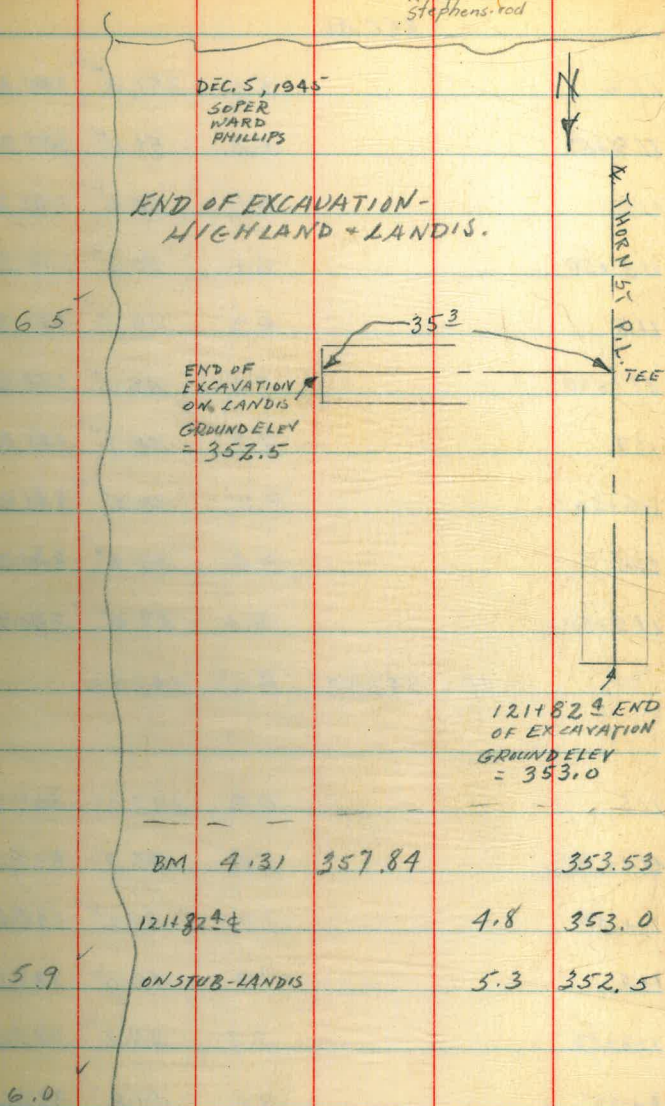 Stephens-rod
DEC. 5, 1945
SOPER
WARD
PHILLIPS
N
END OF EXCAVATION-
HIGHLAND + LANDIS.
THORN ST P.L.
6.5
35 3
TEE
END OF
EXCAVATION
ON LANDIS
GROUND ELEV
= 352.5
121+82 4 END
OF EXCAVATION
GROUND ELEV
= 353.0
BM 4.31 357.84 353.53
121+82 4 ℄ 4.8 353.0
5.9 ON STUB-LANDIS 5.3 352.5
6.0